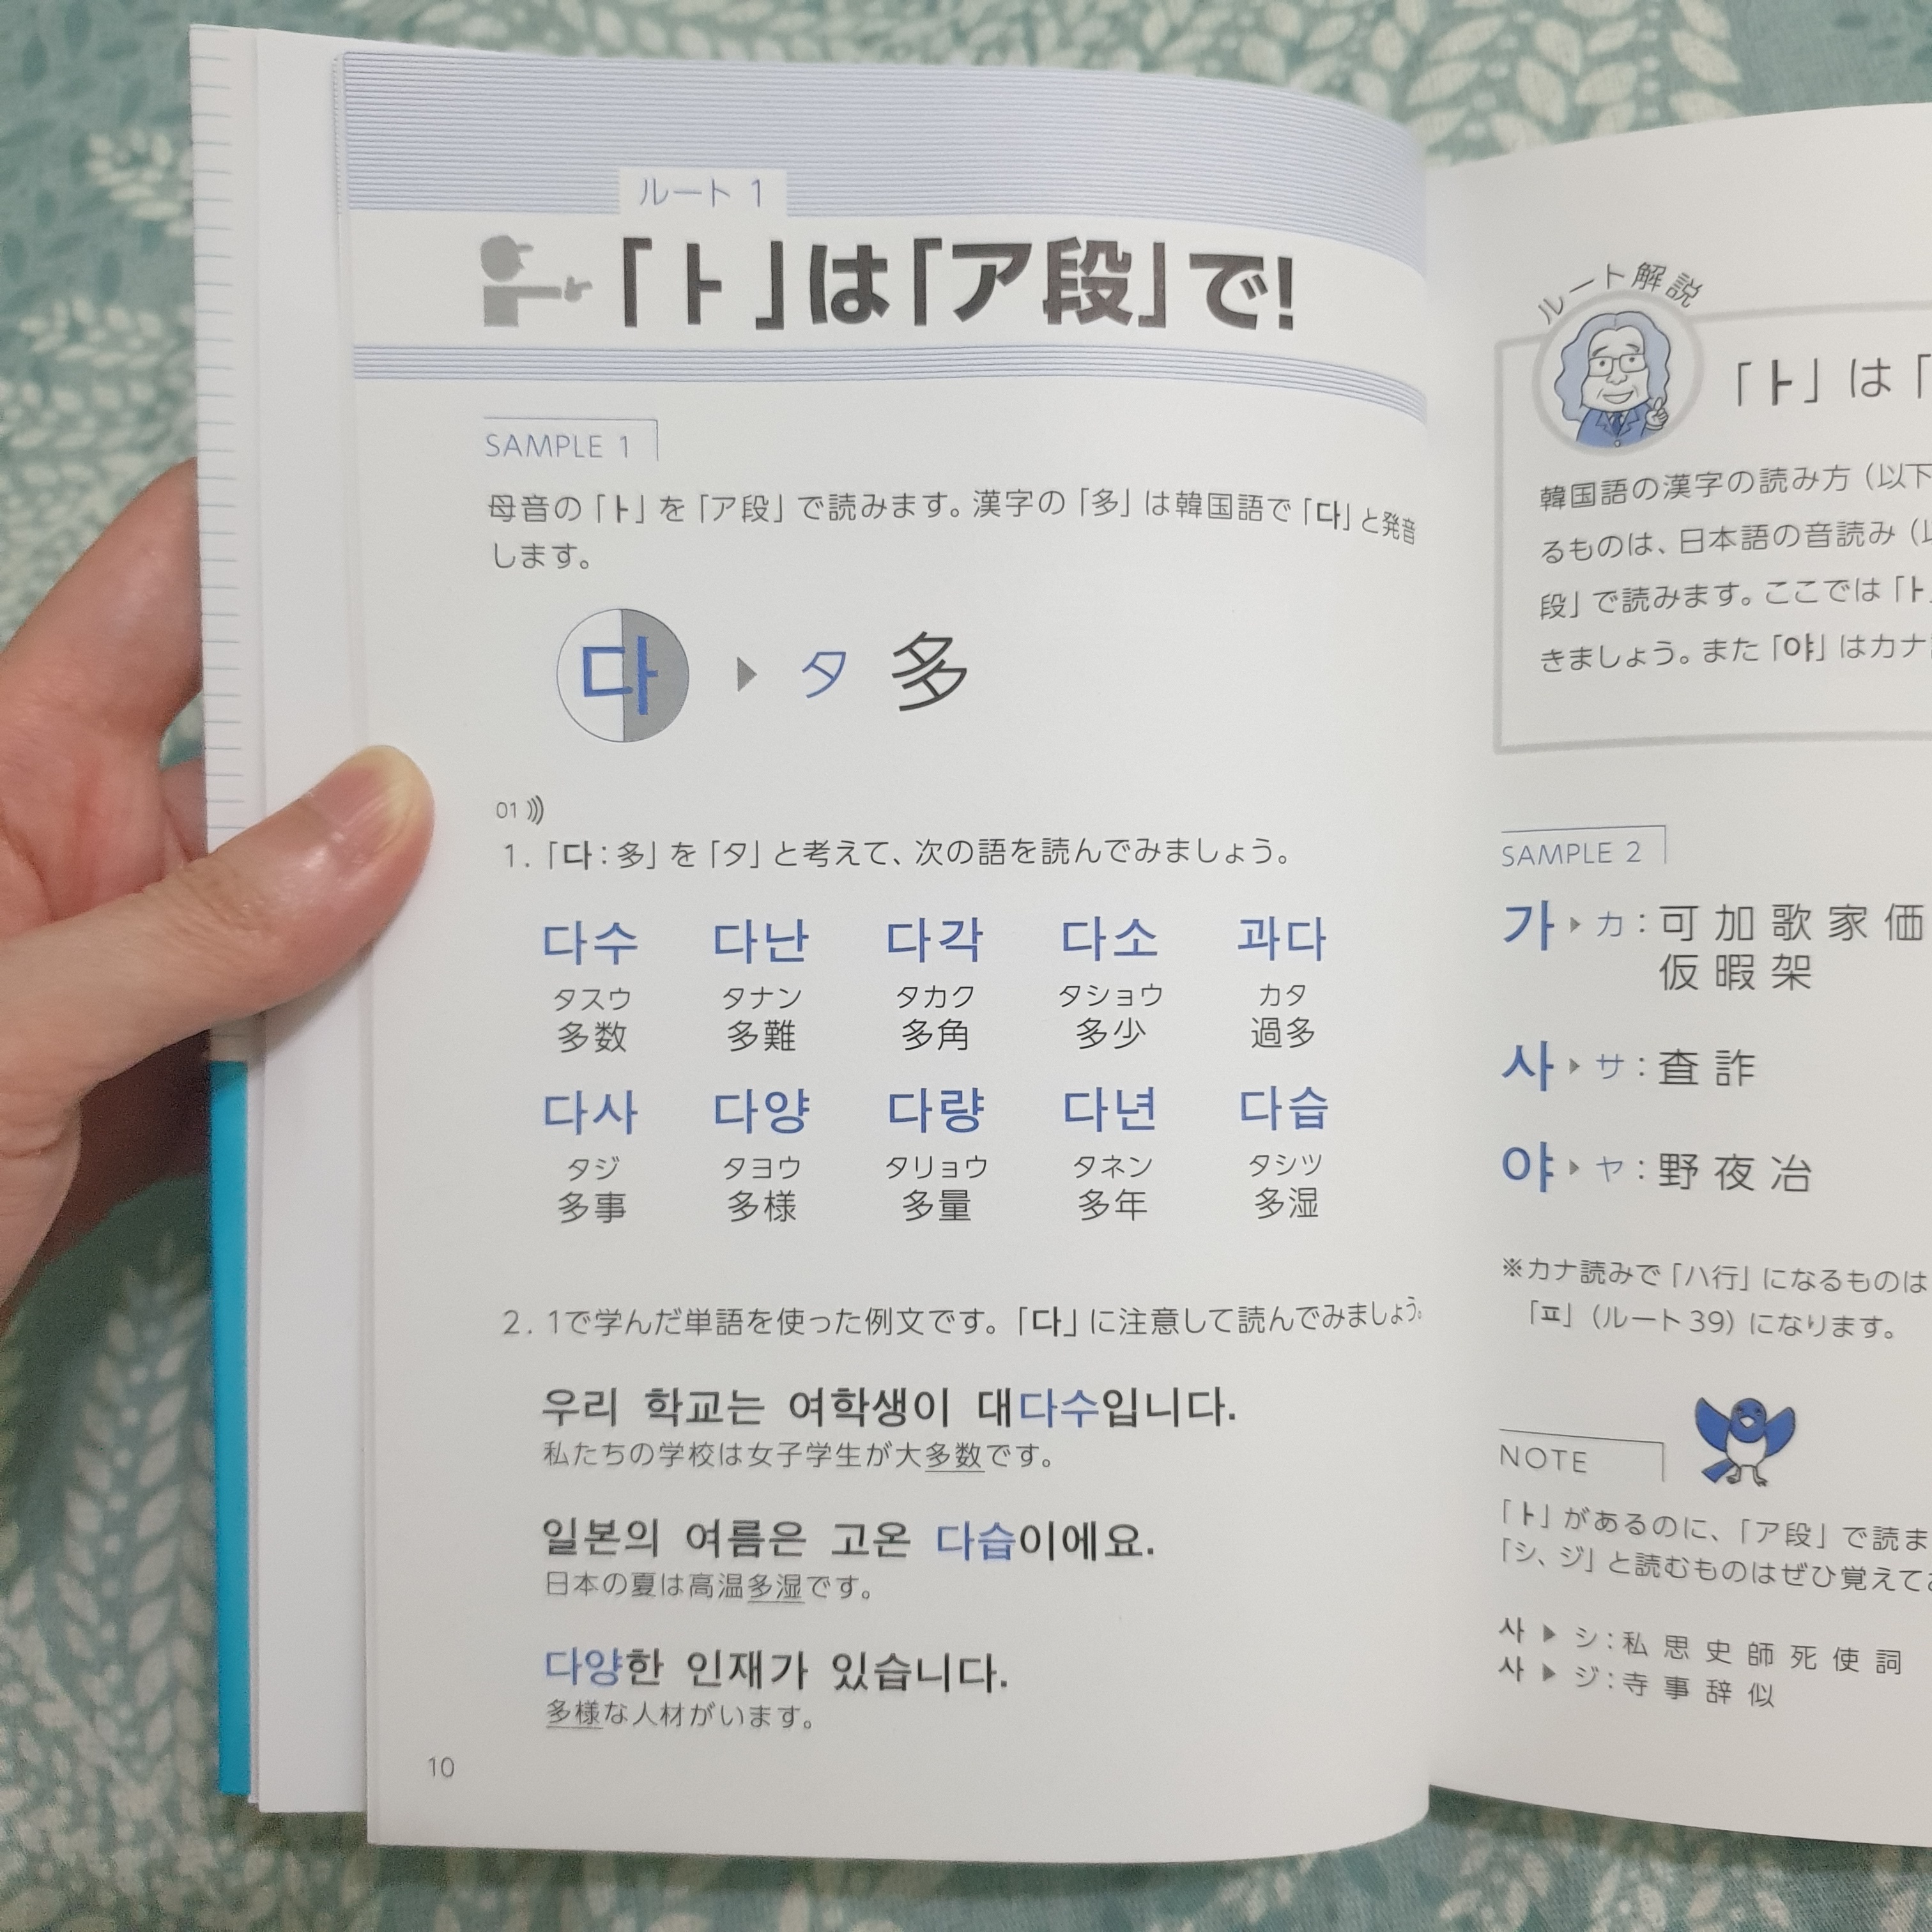 ルート 1
「ㅏ」は「ア段」で!
SAMPLE 1
母音の「ㅏ」を「ア段」で読みます。漢字の「多」は韓国語で「다」と発音
します。
다 ▶ タ 多
01
1. 「다:多」を「タ」と考えて、次の語を読んでみましょう。
다수 다난 다각 다소 과다
タスウ タナン タカク タショウ カタ
多数 多難 多角 多少 過多
다사 다양 다량 다년 다습
タジ タヨウ タリョウ タネン タシツ
多事 多様 多量 多年 多湿
2. 1で学んだ単語を使った例文です。「다」に注意して読んでみましょう。
우리 학교는 여학생이 대다수입니다.
私たちの学校は女子学生が大多数です。
일본의 여름은 고온 다습이에요.
日本の夏は高温多湿です。
다양한 인재가 있습니다.
多様な人材がいます。
10
ルート解説
「ㅏ」は「
韓国語の漢字の読み方（以下
るものは、日本語の音読み（
段」で読みます。ここでは「ㅏ
きましょう。また「야」はカナ
SAMPLE 2
가 ▶ カ:可 加 歌 家 価
仮 暇 架
사 ▶ サ:査 詐
야 ▶ ヤ:野 夜 冶
※カナ読みで「ハ行」になるものは
「ㅍ」（ルート 39）になります。
NOTE
「ㅏ」があるのに、「ア段」で読ま
「シ、ジ」と読むものはぜひ覚えて
사 ▶ シ:私 思 史 師 死 使 詞
사 ▶ ジ:寺 事 辞 似